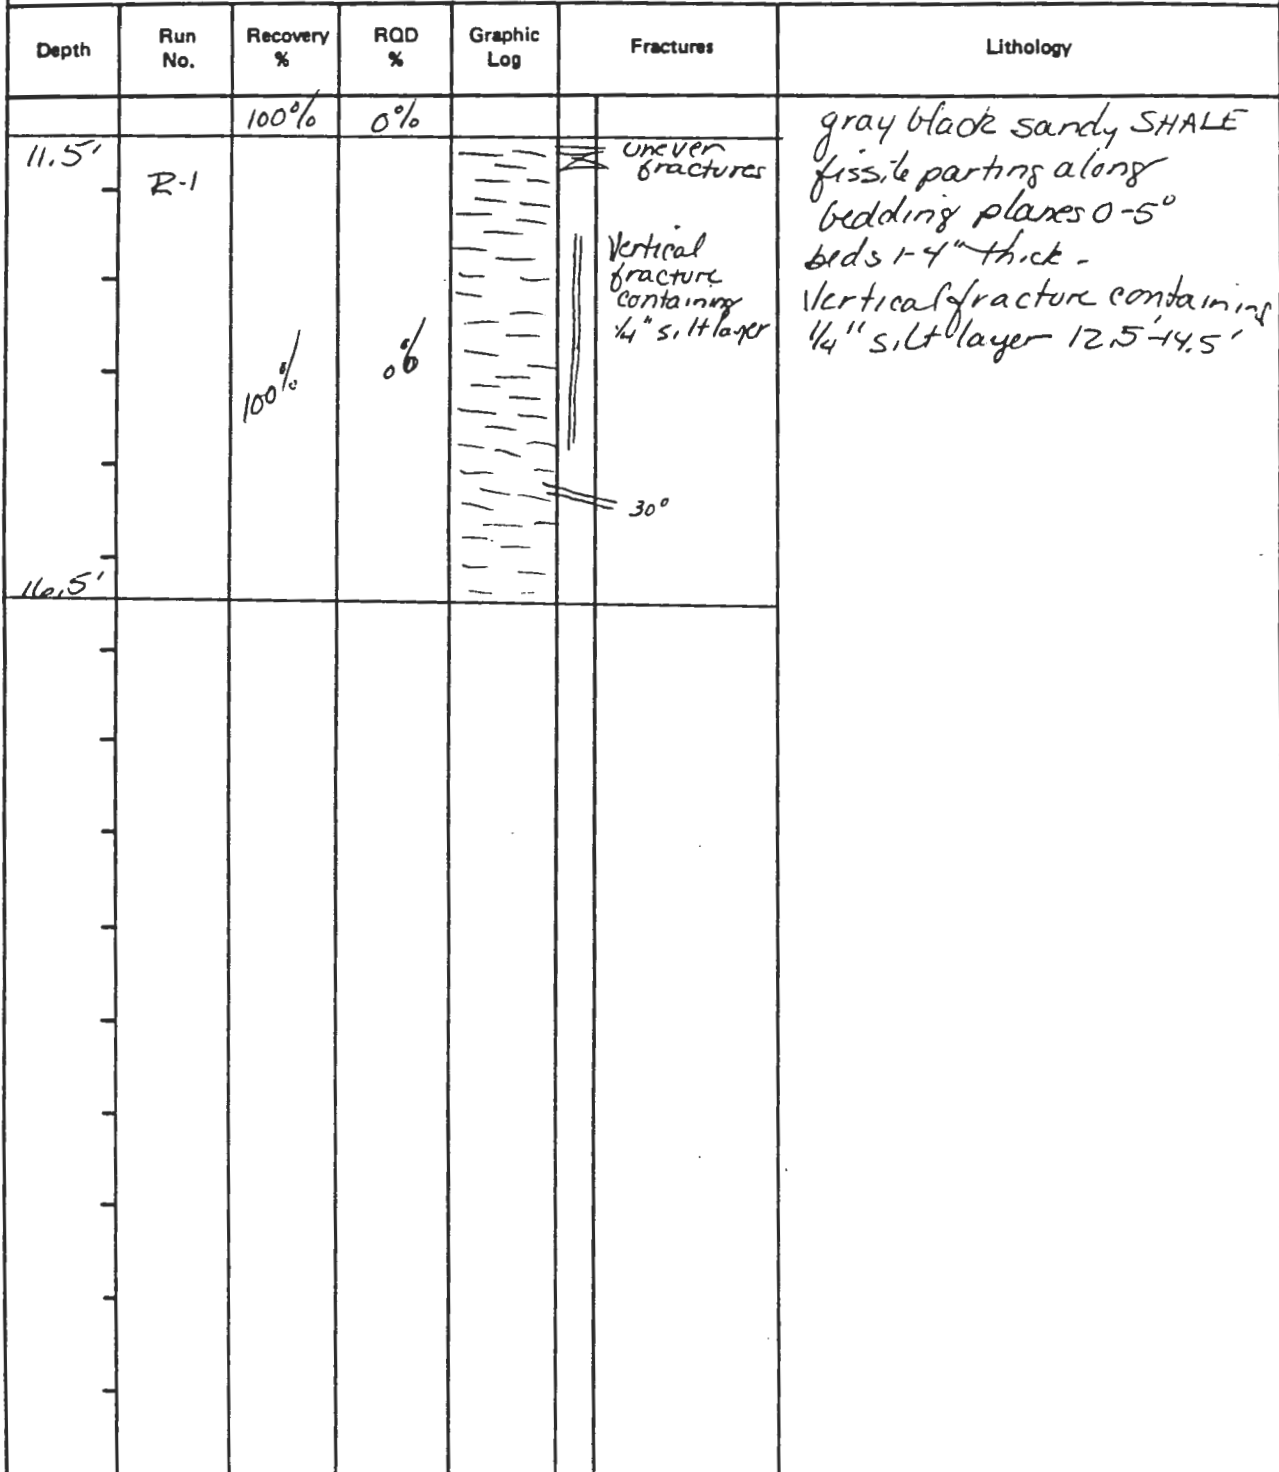 Depth
Run
No.
Recovery
%
RQD
%
Graphic
Log
Fractures
Lithology
100%
0%
11.5'
R-1
100%
0%
uneven
fractures
Vertical
fracture
containing
1/4" silt layer
30°
16.5'
gray black sandy SHALE
fissile parting along
bedding planes 0-5°
beds 1-4" thick -
Vertical fracture containing
1/4" silt layer 12.5'-14.5'